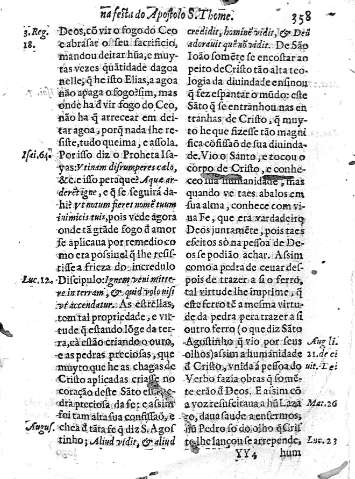 na festa do Apostolo S. Thome. 358
3. Reg.
18.
Deos, cõ vir o fogo do Ceo
e abrasar o seu sacrificio,
mandou deitar hũa, e muy-
tas vezes quãtidade dagoa
nelle, q̃ he isto Elias, a agoa
não apaga o fogo? sim, mas
onde ha d vir fogo do Ceo,
não ha q̃ arrecear em dei-
tar agoa, porq̃ nada lhe re-
siste, tudo queima, e assola.
Isei. 64.
Por isso diz o Propheta Isa-
yas: Vtinam disrumperes cælo,
&c. e isso peraque? Aquæ ar-
derẽt igne, e q̃ se seguirà da-
hi? vt notum fieret nomẽ tuum
inimicis tuis, pois vede agora
onde tã grãde fogo d amor
se aplicaua por remedio co-
mo era possiuel q̃ lhe resi-
stisse a frieza do incredulo
Luc. 12.
Discipulo: Ignem veni mitte-
re in terram, & quid volo nisi
vt accendatur. As estrellas,
tem tal propriedade, e vir-
tude q̃ estando lõge da ter-
ra, cà estão criando o ouro,
e as pedras preciosas, que
muyto que he as chagas de
Cristo aplicadas criasse no
coração deste Sãto essa pe-
dra preciosa da fe: e assim
foi tam alta sua confissão, e
August.
chea d tãta fe q̃ diz S. Ago
stinho; Aliud vidit, & aliud
credidit, hominẽ vidit, & Deũ
adorauit quẽ nõ vidit. De Sã
Ioão somẽte se encostar ao
peito de Cristo tão alta teo-
logia da diuindade ensinou
q̃ fez espantar o mũdo: este
Sãto q̃ se entranhou nas en
tranhas de Cristo, q̃ muy-
to he que fizesse tão magni
fica cõfissão de sua diuinda-
de. Vio o Santo, e tocou o
corpo de Cristo, e conhe-
ceo sua humanidade, mas
quando ve taes abalos em
sua alma, conhece com vi-
ua Fe, que era verdadeiro
Deos juntamẽte, pois taes
efeitos só na pessoa de De-
os se podião achar. Assim
como a pedra de ceuar des-
pois de trazer a si o ferro,
tal virtude lhe imprime, q̃
este ferro tẽ a mesma virtu-
de da pedra pera trazer a si
outro ferro (o que diz Sãto
Agostinho q̃ vio por seus
olhos) assim a humanidade
d Cristo, vnida á pessoa do
Verbo fazia obras q̃ somẽ-
te erão d Deos. E assim cõ
a voz resuscitaua a hũ Laza
ro, daua saude a enfermos,
no Pedro so do olho q̃ Cris
to lhe lançou se arrepende,
Augusti.
21. de ci
uit. Dei
Mat. 26
Luc. 23
YY4 hum